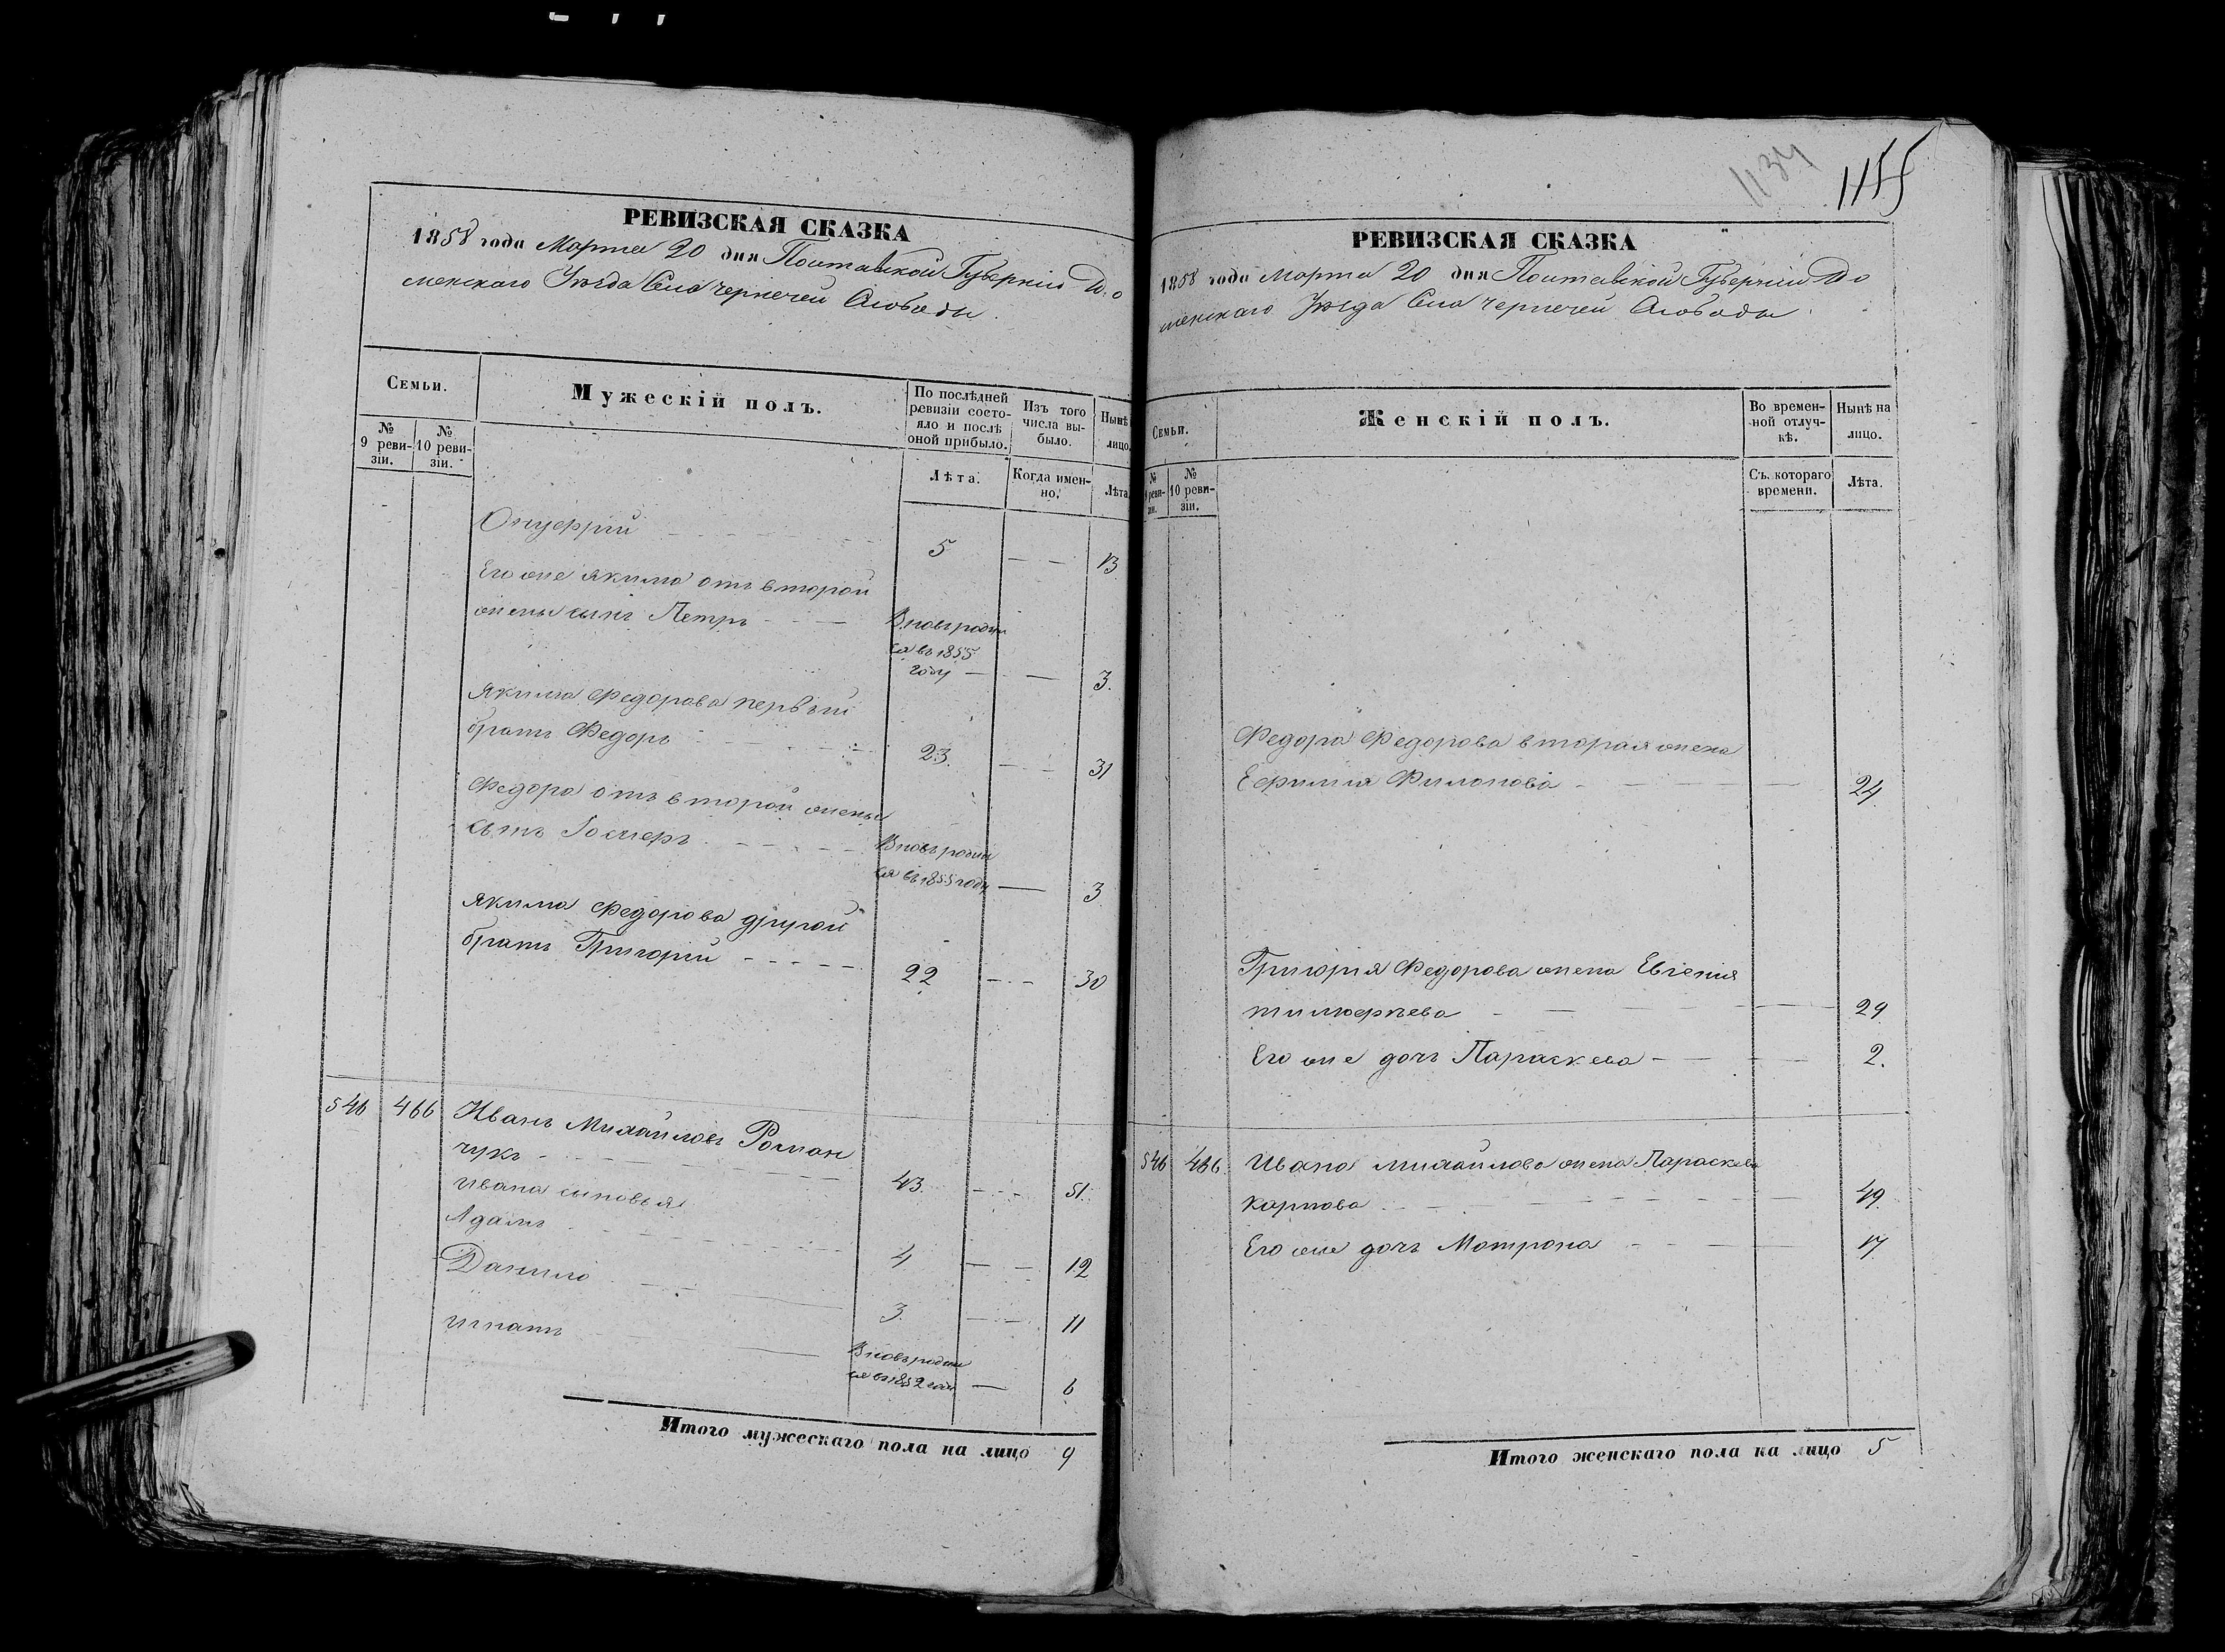 1134
1155
РЕВИЗСКАЯ СКАЗКА
1858 года Марта 20 дня Полтавской Губерніи Ро
менскаго Уѣзда Села Чернечей Слободы.
Семьи.
Мужескій полъ.
По послѣдней ревизіи состояло и послѣ оной прибыло.
Изъ того числа выбыло.
Нынѣ лицо.
№ 9 ревизіи.
№ 10 ревизіи.
Лѣта.
Когда именно.
Лѣта.
Онуфрій 5 13
Его же Якима отъ второй
жены сынъ Петръ Вновь родил
ся въ 1855
году 3.
Якима Федорова первый
братъ Федоръ 23. 31
Федора отъ второй жены
сынъ Вновь родил
ся въ 1855 году 3
Якима Федорова другой
братъ Григорій 22 30
546 466 Иванъ Михайловъ Роман
чукъ 43. 51.
Ивана сыновья
Адамъ 4 12
Данило 3. 11
Игнатъ Вновь родил
ся въ 1852 году 6
Итого мужескаго пола на лицо 9
РЕВИЗСКАЯ СКАЗКА
1858 года Марта 20 дня Полтавской Губерніи Ро
менскаго Уѣзда Села Чернечей Слободы.
Семьи.
Женскій полъ.
Во временной отлучкѣ.
Нынѣ на лицо.
№ 9 ревизіи.
№ 10 ревизіи.
Съ котораго времени.
Лѣта.
Федора Федорова вторая жена
Ефимия Филонова 24
Григорія Федорова жена Евгенія
29
Его же дочь Параскева 2.
546 466. Ивана Михайлова жена Параскева
Карпова 49.
Его же дочь Мотрона 17
Итого женскаго пола на лицо 5